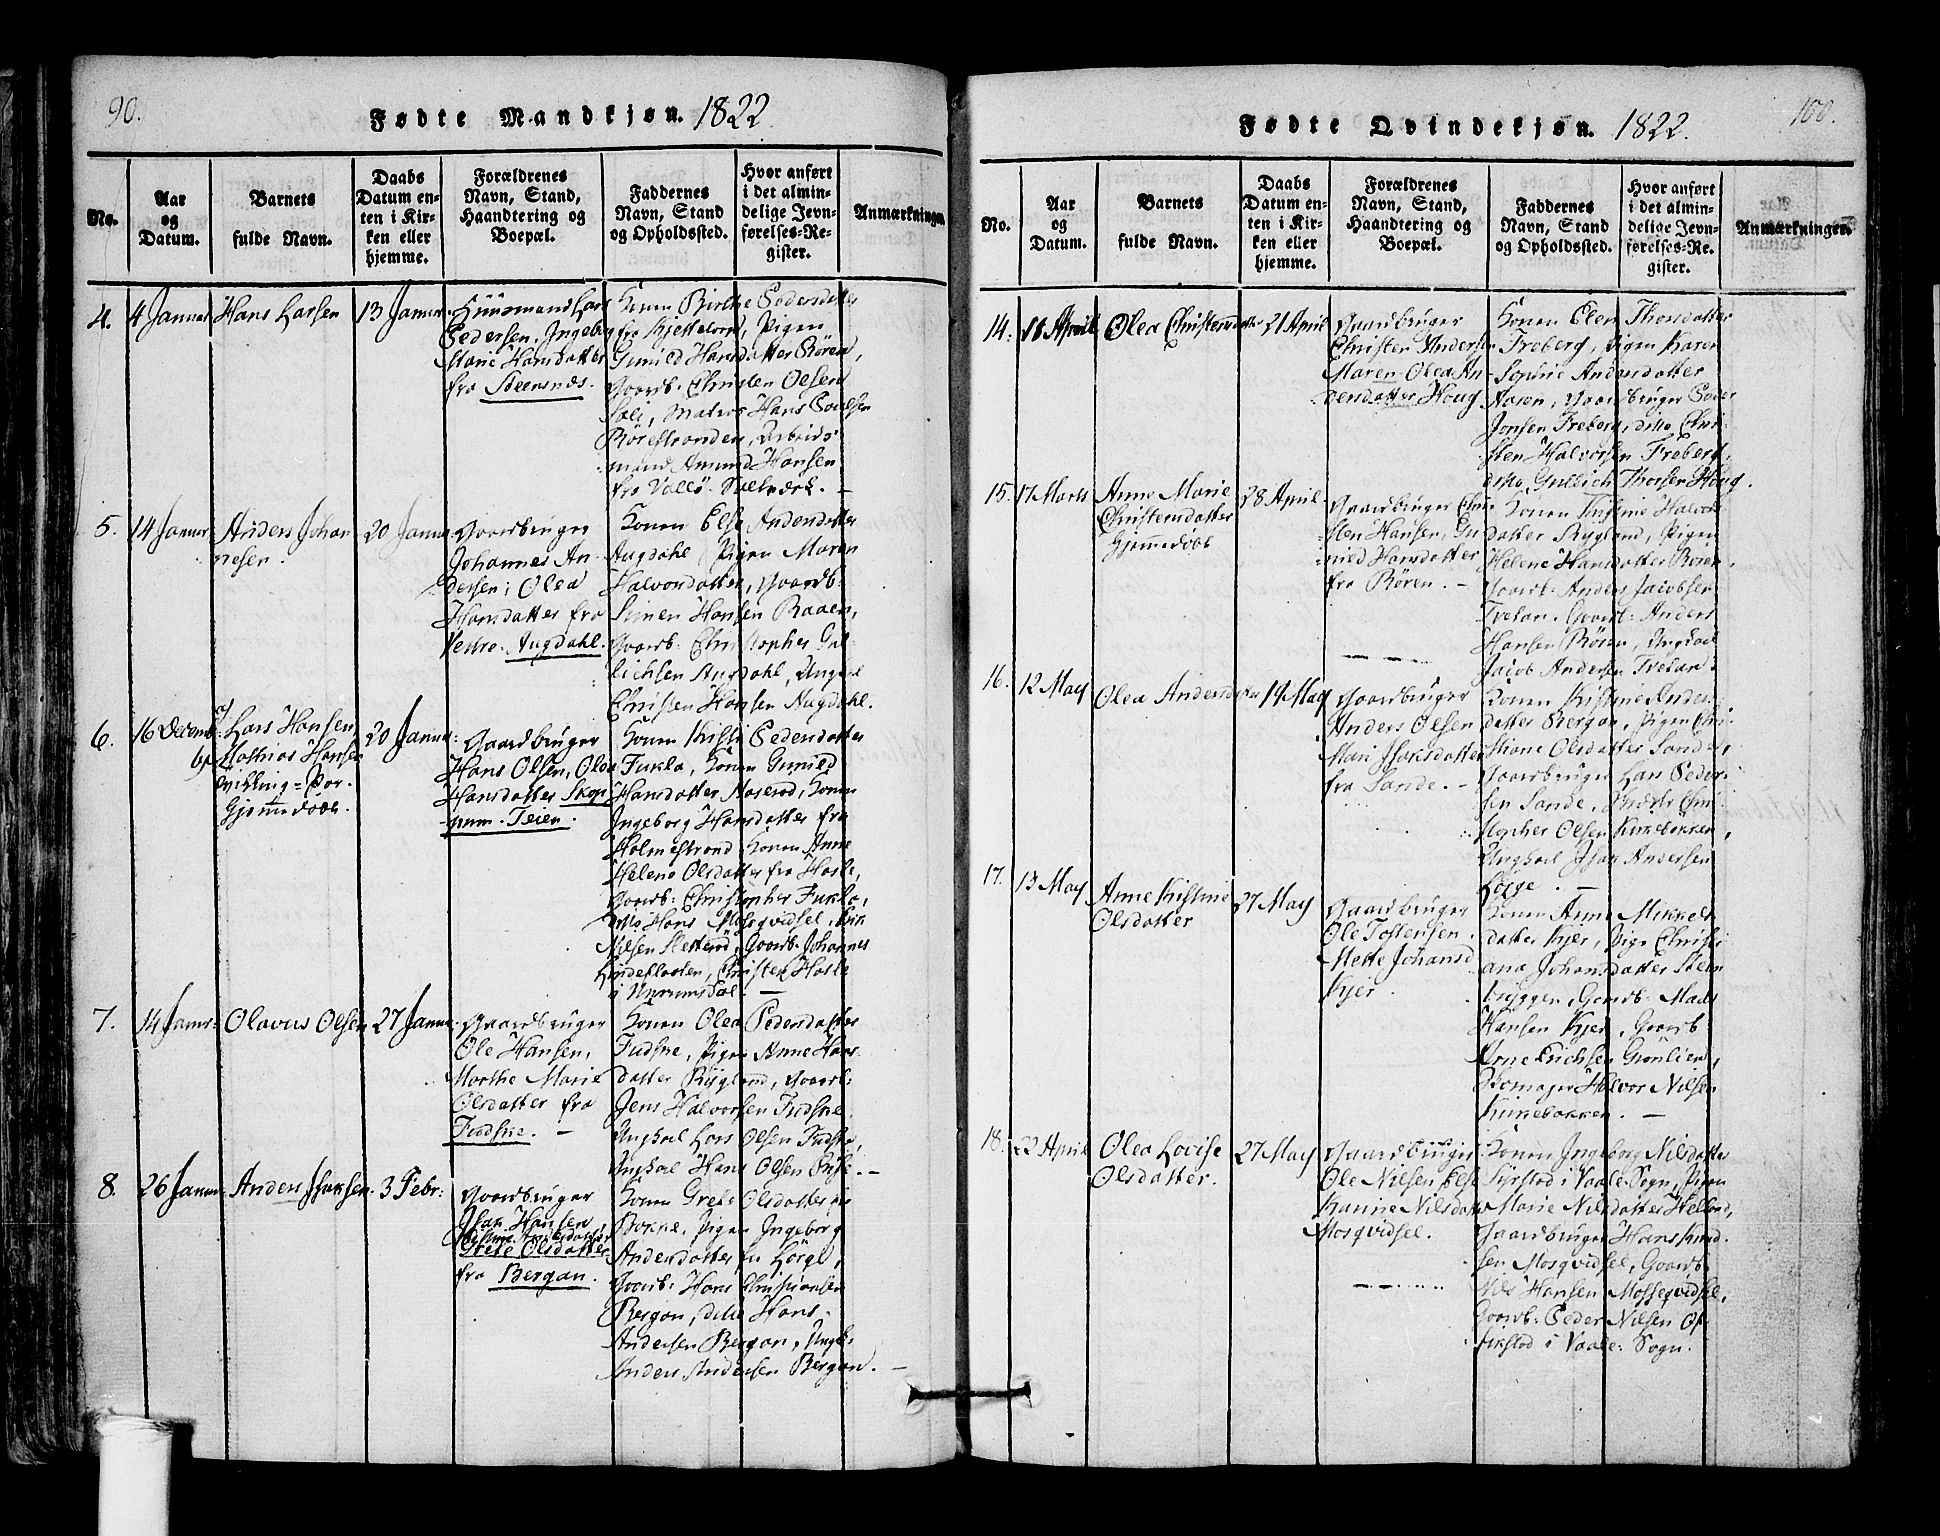 90.
Fødte Mandkjøn. 1822
No.
Aar
og
Datum.
Barnets
fulde Navn.
Daabs
Datum en-
ten i Kir-
ken eller
hjemme.
Forældrenes
Navn, Stand,
Haandtering og
Boepæl.
Faddernes
Navn, Stand
og Opholdssted.
Hvor anført
i det almin-
delige Jevn-
førelses-Re-
gister.
Anmærkninger.
4.
4 Januar
Hans Larsen
13 Januar
Huusmand Lars
Pedersen, Ingeborg
Marie Hansdatter
fra Steensnæs.
Konen Birthe Pedersdatter
fra Kjettelvord, Pigen
Gunild Hansdatter Rören,
Gaardb: Christen Olsen
Soli, Matros Hans Poulsen
Rörestranden, Arbeids-
mand Amund Hansen
fra Vallö Saltværk. —
5.
14 Januar
Anders Johan
nesen.
20 Januar
Gaardbruger
Johannes An-
dersen, Olea
Hansdatter fra
Vestre Augdahl.
Konen Else Andersdatter
Augdahl, Pigen Maren
Halvorsdatter, Gaardb:
Simen Hansen Raaen,
Gaardb: Christopher Gul-
lichsen Augdahl, Ungkarl
Christen Hansen Augdahl.
6.
16 Decemb:
Lars Hansen,
Mathias Hansen
Tvilling-Par.
Gjemmedöbt.
20 Januar
Gaardbruger
Hans Olsen, Olea
Hansdatter Skop
pum-Teien.
Konen Kisti Pedersdatter
Fukla, Konen Gunild
Hansdatter Aaserod, Konen
Ingeborg Hansdatter fra
Holmestrand, Konen Anne
Helene Olsdatter fra Hasle,
Gaardb: Christopher Fukla,
ditto Hans Mosqvidsel, Erik
Nilsen Sletterød, Gaardb. Johannes
Lindefladten, Christen Hasle
i Undrumsdal. —
7.
14 Janus:
Olavus Olsen
27 Januar
Gaardbruger
Ole Hansen,
Marthe Marie
Olsdatter fra
Fudske. —
Konen Olea Pedersdatter
Fudske, Pigen Anne Hans-
datter Rÿgland, Gaardb:
Jens Halvorsen Fudske.
Ungkarl Lars Olsen Fudske
Ungkarl Hans Olsen Fuske. —
8.
26 Januar
Anders Isaksen.
3 Febr:
Gaardbruger
Isak Hansen,
Grete Olsdatter
fra Bergan.
Konen Grete Olsdatter fra
Bokke, Pigen Ingeborg
Andersdatter fra Horge,
Gaardb: Hans Christiansen
Bergan, ditto Hans
Andersen Bergan, Ungk:
Anders Andersen Bergan. —
100.
Fødte Qvindekjøn. 1822.
No.
Aar
og
Datum.
Barnets
fulde Navn.
Daabs
Datum en-
ten i Kir-
ken eller
hjemme.
Forældrenes
Navn, Stand,
Haandtering og
Boepæl.
Faddernes
Navn, Stand
og Opholdssted.
Hvor anført
i det almin-
delige Jevn-
førelses-Re-
gister.
Anmærkninger.
14.
16 April
Olea Christensdatter
21 April
Gaardbruger
Christen Andersen
Maren Olea An-
dersdatter Houg
Konen Elen Thorsdatter
Freberg, Pigen Karen
Sophie Andersdatter
Aasen, Gaardbruger Peder
Jonsen Freberg, ditto Chri-
sten Halvorsen Freberg,
ditto Gullich Thorsen Houg.
15.
17 Marts
Anne Marie
Christensdatter
Gjemmedöbt
28 April
Gaardbruger Chri
sten Hansen, Gu
nild Hansdatter
fra Rören. —
Konen Kistine Halvors
datter Rygland, Pigen
Helene Hansdatter Rören,
Gaardb: Anders Jacobsen
Tvetan, Gaardb: Anders
Hansen Rören, Ungkarl
Jacob Andersen Tvetan.
16.
12 May
Olea Andersdatter
19 May
Gaardbruger
Anders Olsen
Mari Isaksdatter
fra Sande. —
Konen Kistine Anders
datter Bergan, Pigen Chri
stiane Olsdatter Sande,
Gaardbruger Lars Peder
sen Sande, Christ
stopher Olsen Kirkebakken,
Ungkarl Isak Andersen
Hojge. —
17.
13 May
Anne Kistine
Olsdatter
27 May
Gaardbruger
Ole Tostensen.
Mette Johansd
Kjer.
Konen Anne Mikkels
datter Kjer, Pige Christi
ana Johansdatter Steen
bryggen, Gaardb: Mads
Hansen Kjer, Gaardb
Arne Erichsen Grönlien,
Skomager Halvor Nilsen
Kirkebakken. —
18.
22 April
Olea Lovise
Olsdatter.
27 May
Gaardbruger
Ole Nilsen, Else
Karine Nilsdatter
Mosqvidsel.
Konen Ingeborg Nilsdatter
Syrstod i Vaale Sogn, Pigen
Marie Nilsdatter Helland,
Gaardbruger Hans Knud
sen Mosqvidsel, Gaardb:
Nils Hansen Mosseqvidsel,
Gaardb: Peder Nilsen
i Vaale Sogn.